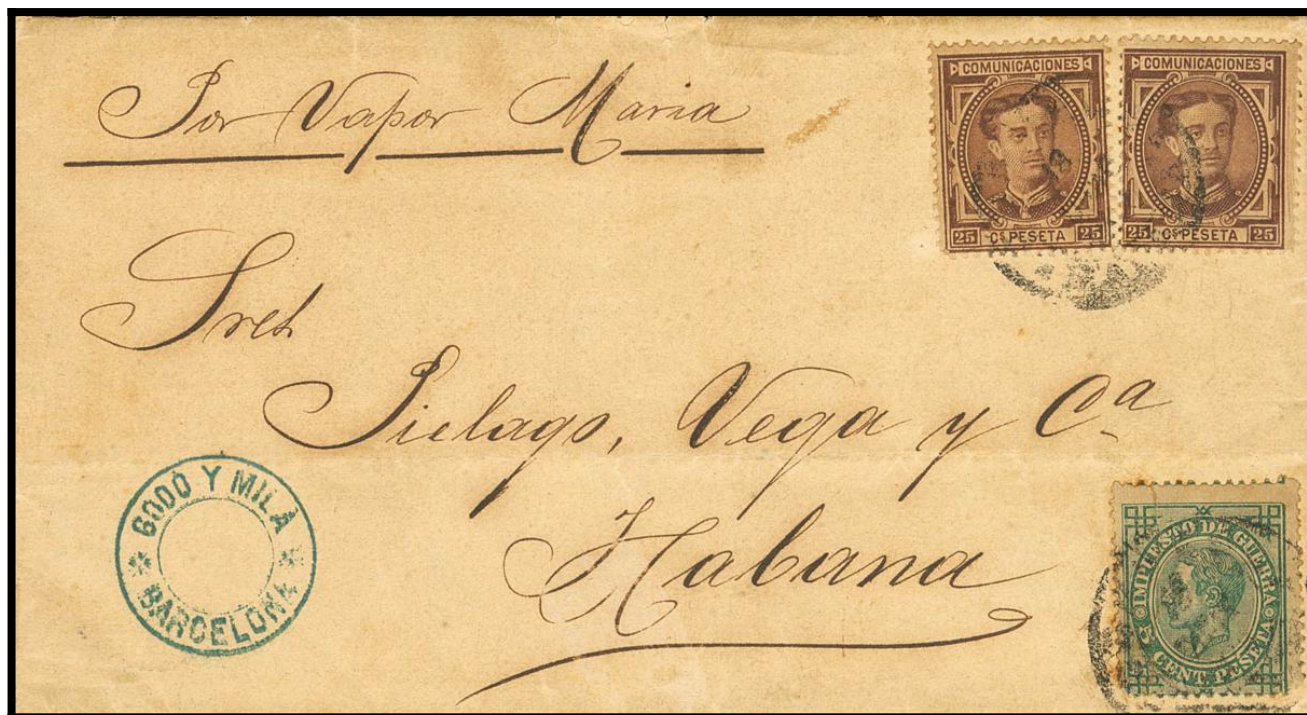 Por Vapor Maria
COMUNICACIONES
25 Cs PESETA 25
COMUNICACIONES
25 Cs PESETA 25
Sres
Pielago, Vega y Cª
Habana
GODÓ Y MILÁ
BARCELONA
IMPUESTO DE GUERRA
5 CENT. PESETA 5